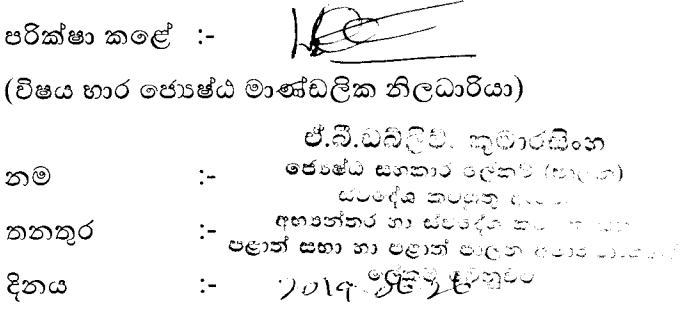 පරික්ෂා කළේ :-
(විෂය භාර ජ්‍යෙෂ්ඨ මාණ්ඩලික නිලධාරියා)
ඒ.බී.ඩබ්ලිව්. කුමාරසිංහ
නම :- ජ්‍යෙෂ්ඨ සහකාර ලේකම් (පාලන)
ස්වදේශ කටයුතු
තනතුර :- අභ්‍යන්තර හා ස්වදේශ
පළාත් සභා හා පළාත් පාලන
ලේකම් වෙනුවට
දිනය :- 2019